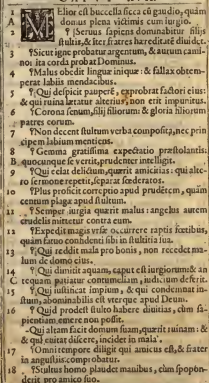 MElior est buccella sicca cū gaudio, quàm
domus plena victimis cum iurgio.
2 ¶ Seruus sapiens dominabitur filijs
stultis, & iter fratres hæreditatē diuidet.
3 ¶ Sicut igne probatur argentum, & aurum cami-
no: ita corda probat Dominus.
4 ¶ Malus obedit linguæ iniquæ: & fallax obtem-
perat labiis mendacibus.
5 ¶ Qui despicit pauperē, exprobrat factori eius:
& qui ruina lætatur alterius, non erit impunitus.
6 ¶ Corona senum, filij filiorum: & gloria filiorum
patres eorum.
7 ¶ Non decent stultum verba composita, nec prin
cipem labium mentiens.
8 ¶ Gemma gratissima expectatio præstolantis:
B quocunque se vertit, prudenter intelligit.
9 ¶ Qui celat delictum, quærit amicitias: qui alte-
ro sermone repetit, separat fœderatos.
10 ¶ Plus proficit correptio apud prudētem, quàm
centum plagæ apud stultum.
11 ¶ Semper iurgia quærit malus: angelus autem
crudelis mittetur contra eum.
12 ¶ Expedit magis vrsæ occurrere raptis fœtibus,
quàm fatuo confidenti sibi in stultitia sua.
13 ¶ Qui reddit mala pro bonis, non recedet ma-
lum de domo eius.
14 ¶ Qui dimittit aquam, caput est iurgiorum: & an
C tequam patiatur contumeliam, iudicium deserit.
15 ¶ Qui iustificat impium, & qui condemnat iu-
stum, abominabilis est vterque apud Deum.
16 ¶ Quid prodest stulto habere diuitias, cùm sa-
pientiam emere non possit.
Qui altam facit domum suam, quærit ruinam: &
& qui euitat discere, incidet in mala.
17 ¶ Omni tempore diligit qui amicus est, & frater
in angustiis comprobatur.
18 ¶ Stultus homo plaudet manibus, cùm spopon-
derit pro amico suo.